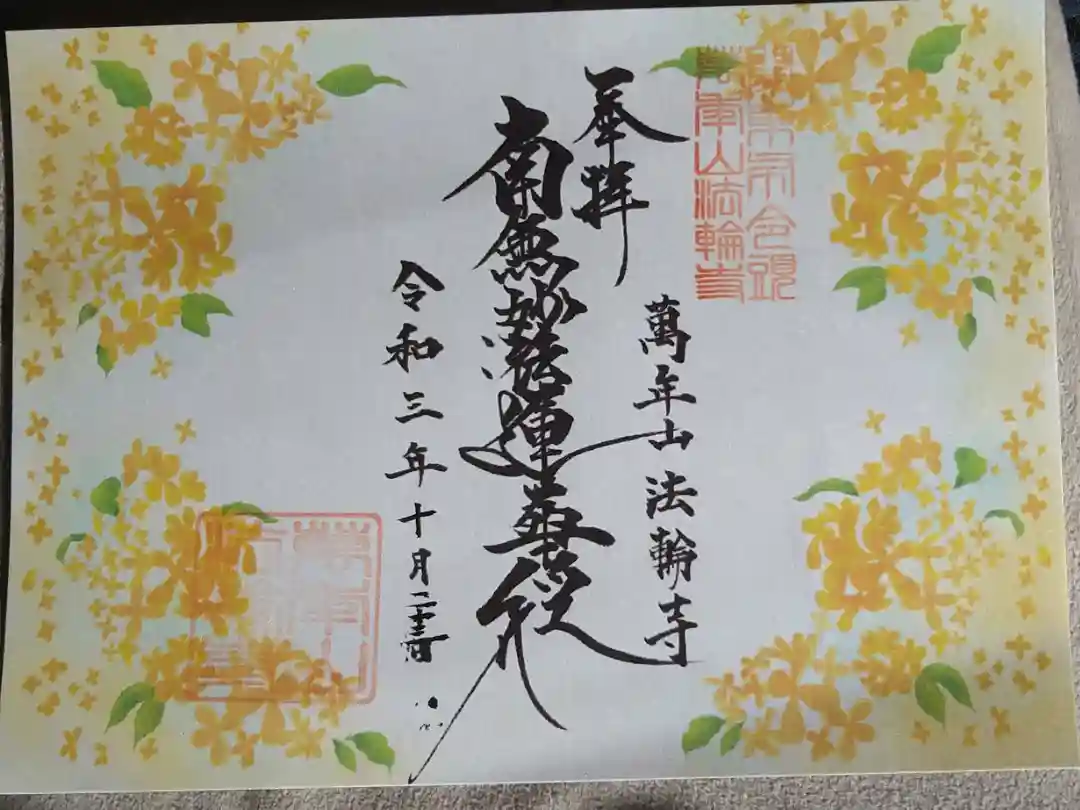 萬年山法輪寺
奉拝
萬年山法輪寺
南無妙法蓮華経
令和三年十月二十三日